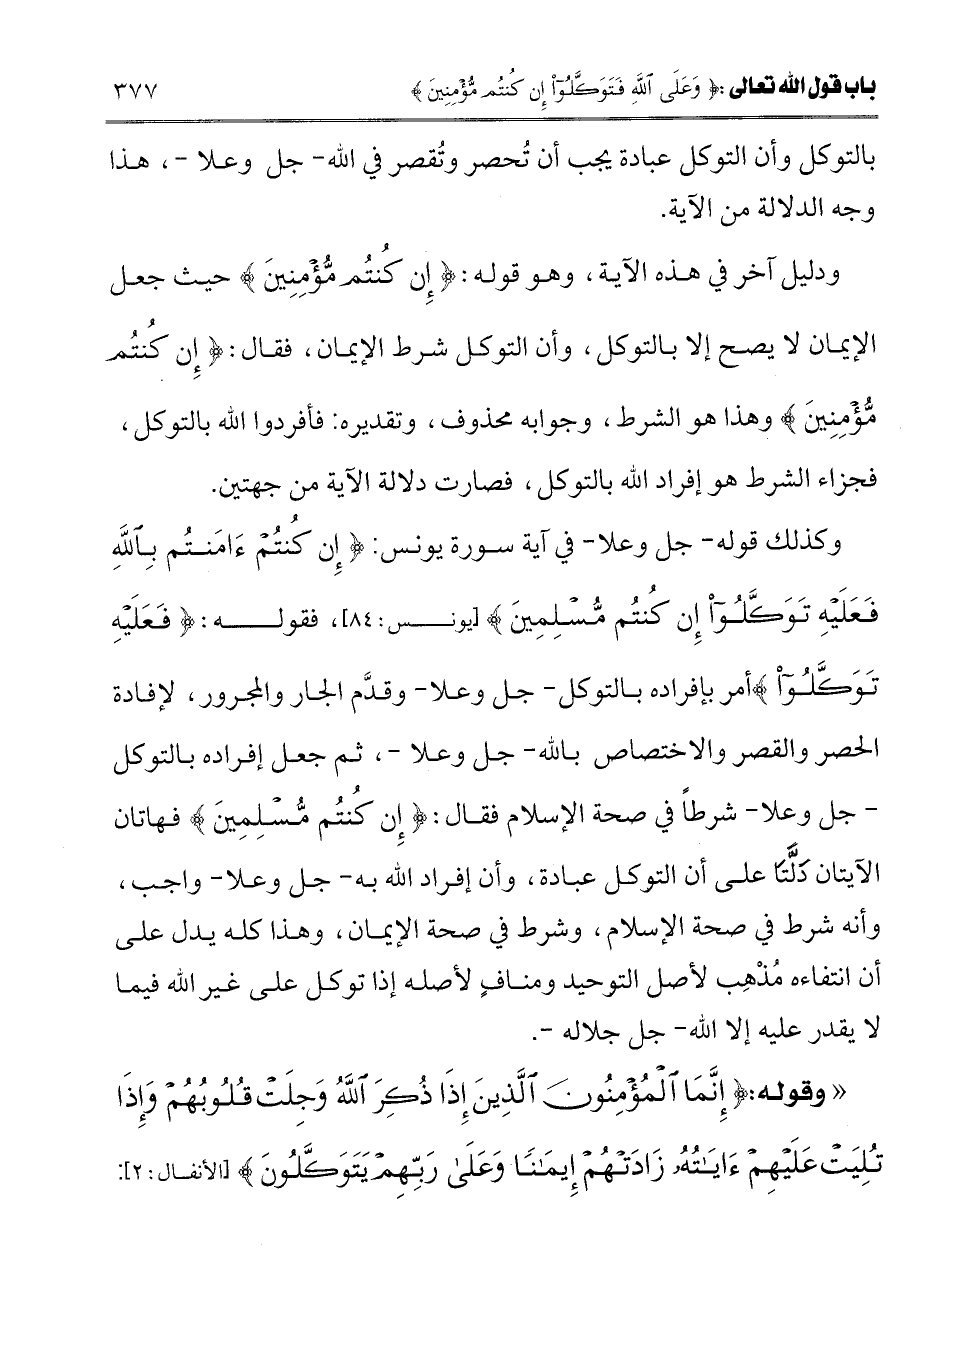 باب قول الله تعالى :﴿ وَعَلَى ٱللَّهِ فَتَوَكَّلُوٓا۟ إِن كُنتُم مُّؤْمِنِينَ ﴾ ٣٧٧
بالتوكل وأن التوكل عبادة يجب أن تُحصر وتُقصر في الله- جل وعلا -، هذا
وجه الدلالة من الآية.
ودليل آخر في هذه الآية، وهو قوله :﴿ إِن كُنتُم مُّؤْمِنِينَ ﴾ حيث جعل
الإيمان لا يصح إلا بالتوكل، وأن التوكل شرط الإيمان، فقال :﴿ إِن كُنتُم
مُّؤْمِنِينَ ﴾ وهذا هو الشرط، وجوابه محذوف، وتقديره: فأفردوا الله بالتوكل،
فجزاء الشرط هو إفراد الله بالتوكل، فصارت دلالة الآية من جهتين.
وكذلك قوله- جل وعلا- في آية سورة يونس: ﴿ إِن كُنتُمْ ءَامَنتُم بِٱللَّهِ
فَعَلَيْهِ تَوَكَّلُوٓا۟ إِن كُنتُم مُّسْلِمِينَ ﴾ [يونس: ٨٤]، فقوله :﴿ فَعَلَيْهِ
تَوَكَّلُوٓا۟ ﴾أمر بإفراده بالتوكل- جل وعلا- وقدَّم الجار والمجرور، لإفادة
الحصر والقصر والاختصاص بالله- جل وعلا -، ثم جعل إفراده بالتوكل
- جل وعلا- شرطاً في صحة الإسلام فقال :﴿ إِن كُنتُم مُّسْلِمِينَ ﴾ فهاتان
الآيتان دَلَّتا على أن التوكل عبادة، وأن إفراد الله به- جل وعلا- واجب،
وأنه شرط في صحة الإسلام، وشرط في صحة الإيمان، وهذا كله يدل على
أن انتفاءه مُذْهِب لأصل التوحيد ومنافٍ لأصله إذا توكل على غير الله فيما
لا يقدر عليه إلا الله- جل جلاله -.
« وقوله :﴿ إِنَّمَا ٱلْمُؤْمِنُونَ ٱلَّذِينَ إِذَا ذُكِرَ ٱللَّهُ وَجِلَتْ قُلُوبُهُمْ وَإِذَا
تُلِيَتْ عَلَيْهِمْ ءَايَٰتُهُۥ زَادَتْهُمْ إِيمَٰنًا وَعَلَىٰ رَبِّهِمْ يَتَوَكَّلُونَ ﴾ [الأنفال: ٢]: